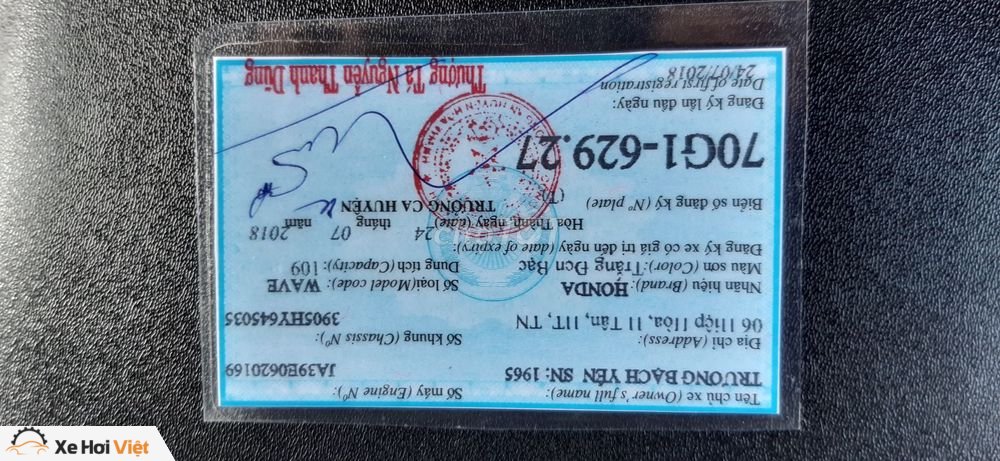 Tên chủ xe (Owner's full name):
TRƯƠNG BẠCH YẾN SN: 1965
Số máy (Engine Nº):
JA39E0620169
Địa chỉ (Address):
06 Hiệp Hòa, H Tân, HT, TN
Số khung (Chassis Nº):
3905HY645035
Nhãn hiệu (Brand): HONDA
Số loại(Model code): WAVE
Màu sơn (Color): Trắng Đen Bạc
Dung tích (Capacity): 109
Đăng ký có giá trị đến ngày (date of expiry):
Hòa Thành, ngày (date) 24 tháng 07 năm 2018
Biển số đăng ký (Nº plate) (T)
TRƯỞNG CA HUYỆN
70G1-629.27
Đăng ký lần đầu ngày:
Date of first registration
24/07/2018
Thượng Tá Nguyễn Thanh Dũng
Xe Hơi Việt